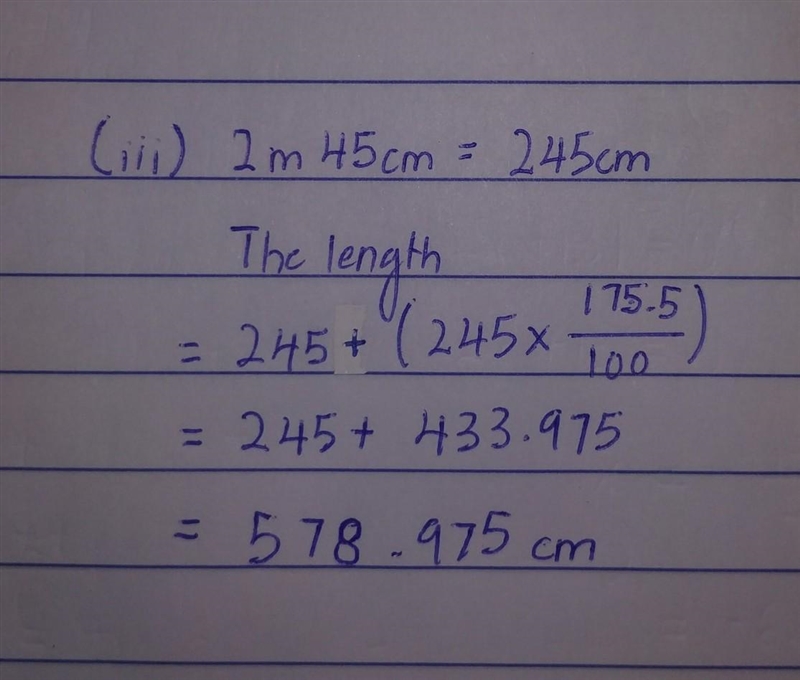 (iii) 2m 45cm = 245cm
The length
= 245 + (245 x 175.5/100)
= 245 + 433.975
= 578.975 cm